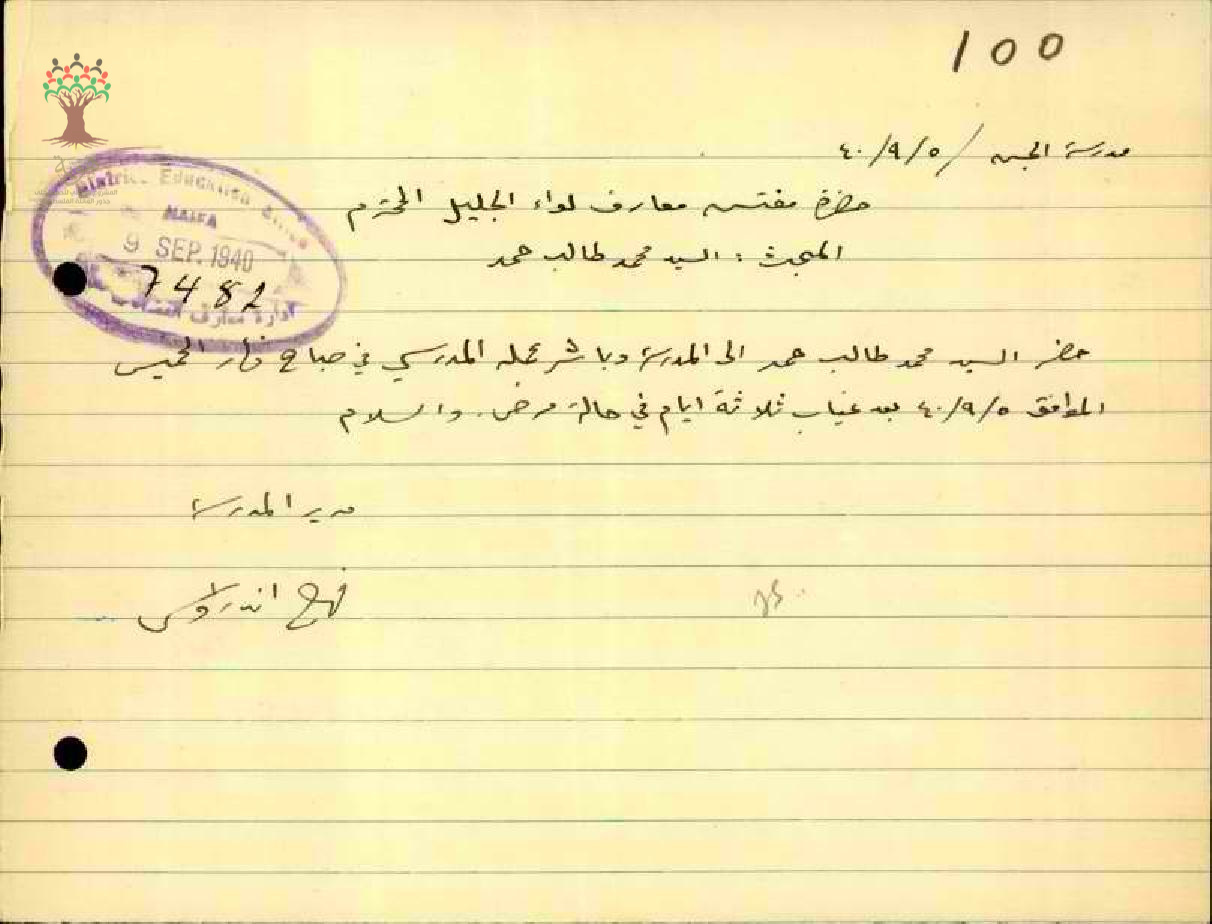 100
مدرسة الجش / ٥/٩/٤٠
حضرة مفتش معارف لواء الجليل المحترم
المبحث : السيد محمد طالب حمد
حضر السيد محمد طالب حمد الى المدرسة وباشر عمله المدرسي في صباح نهار الخميس
الموافق ٥/٩/٤٠ بعد غياب ثلاثة ايام في حالة مرض. والسلام
مدير المدرسة
اندراوس
District Education Office
HAIFA
9 SEP. 1940
7482
ادارة معارف